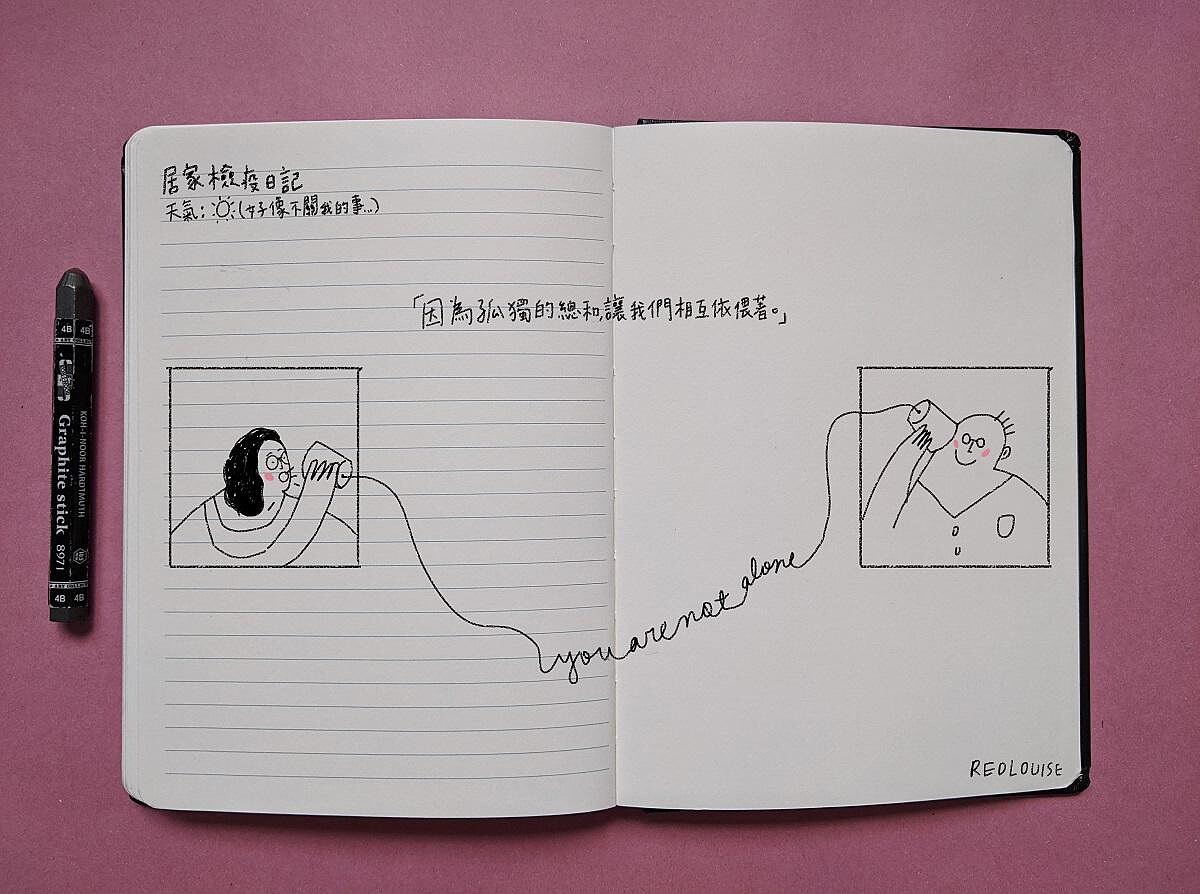 居家檢疫日記
天氣：☼(好像不關我的事...)
「因為孤獨的總和,讓我們相互依偎著。」
you are not alone
REDLOUISE
4B 4B
KOH-I-NOOR HARDTMUTH
Graphite stick 8971
4B 4B